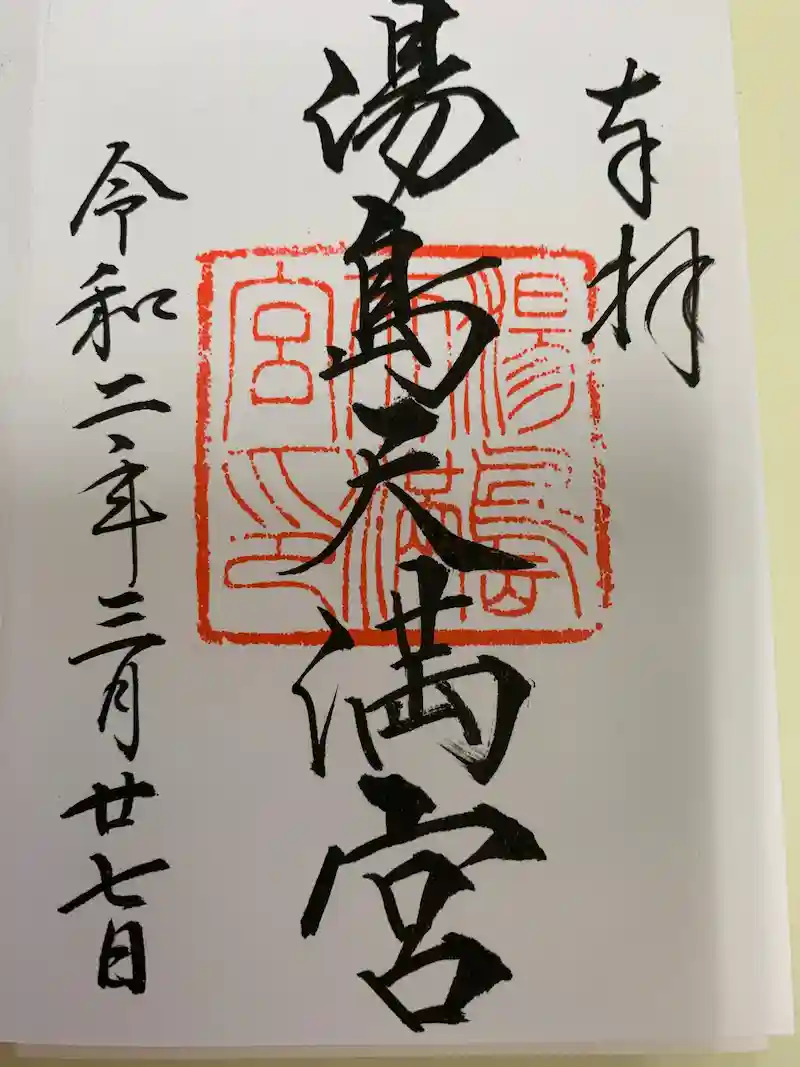 奉拝
湯島天満宮
湯島天満宮印
令和二年三月廿七日